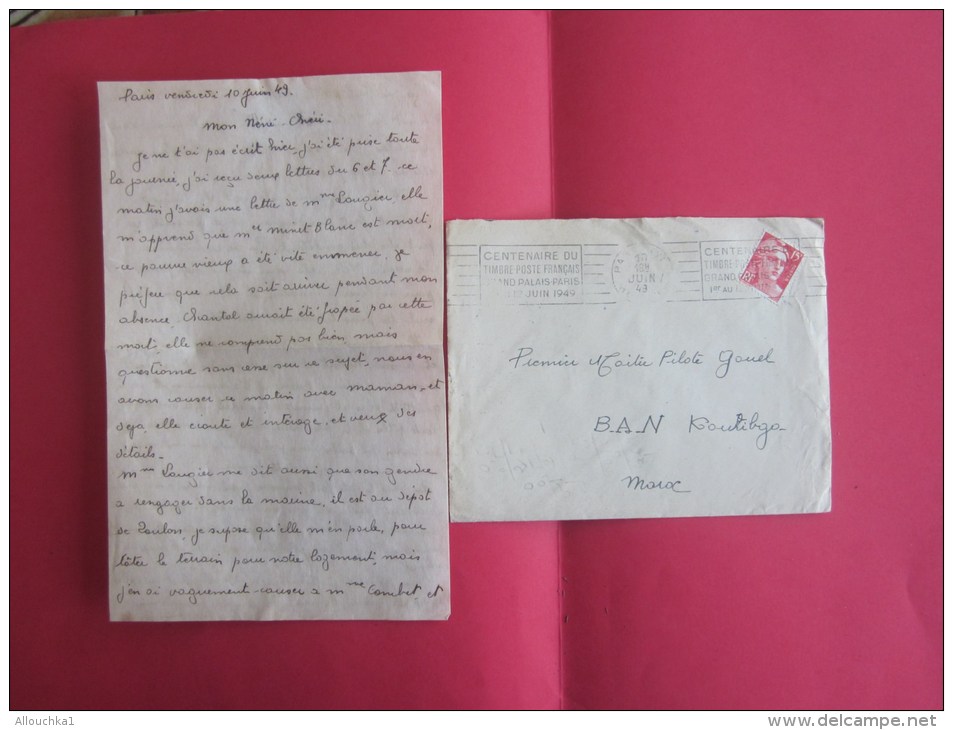 Paris vendredi 10 Juin 49.
Mon Néné-Chéri.
Je ne t'ai pas écrit hier, j'ai été prise toute
la journée, j'ai reçu deux lettres du 6 et 7. ce
matin j'avais une lettre de Mme Laugier, elle
m'apprend que Mr Minet Blanc est mort,
ce pauvre vieux a été vite emmener, Je
préfère que cela soit arriver pendant mon
absence, Chantal aurait été frapée par cette
mort, elle ne comprend pas bien, mais
questionne sans cesse sur ce sujet, nous en
avons causer ce matin avec maman, et
deja, elle écoute et intéroge, et veux des
détails.
Mme Laugier me dit aussi que son gendre
a rengager dans la marine, il est au dépot
de Toulon, je supose qu'elle m'en parle, pour
tâter le terrain pour notre logement, mais
j'en ai vaguement causer a Mme Combet, et
CENTENAIRE DU
TIMBRE-POSTE FRANÇAIS
GRAND PALAIS-PARIS
12 JUIN 1949
JUIN
49
CENTENAIRE
TIMBRE
GRAND
1er AU
15F
RF
Premier Maitre Pilote Gauel
B.A.N Kouribga
Maroc
Allouchka1
www.delcampe.net